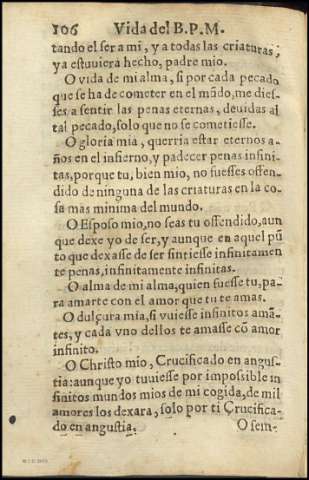 106 Vida del B. P. M.
tando el ser a mi, y a todas las criaturas,
ya estuuiera hecho, padre mio.
O vida de mi alma, si por cada pecado
que se ha de cometer en el mũdo, me dies-
ses a sentir las penas eternas, deuidas al
tal pecado, solo que no se cometiesse.
O gloria mia, querria estar eternos a-
ños en el infierno, y padecer penas infini-
tas, porque tu, bien mio, no fuesses offen-
dido de ninguna de las criaturas en la co-
sa mas minima del mundo.
O Esposo mio, no seas tu offendido, aun
que dexe yo de ser, y aunque en aquel pũ
to que dexasse de ser sintiesse infinitamen
te penas, infinitamente infinitas.
O alma de mi alma, quien fuesse tu, pa-
ra amarte con el amor que tu te amas.
O dulçura mia, si vuiesse infinitos amã-
tes, y cada vno dellos te amasse cõ amor
infinito.
O Christo mio, Crucificado en angus-
tia: aunque yo tuuiesse por impossible in
finitos mundos mios de mi cogida, de mil
amores los dexara, solo por ti Crucifica-
do en angustia. O sem-